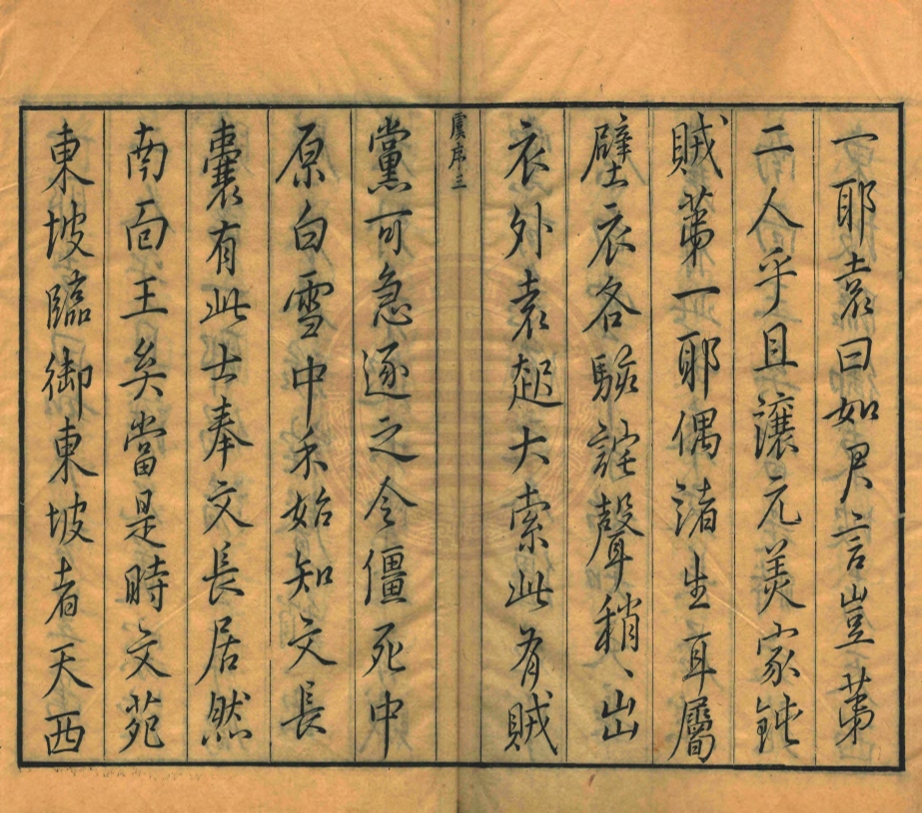 一耶袁曰如君言豈第
二人乎且讓元美家鈍
賊第一耶偶諸生耳屬
壁衣各駭詫聲稍、出
衣外袁起大索此有賊
虞序三
黨可急逐之令僵死中
原白雪中禾始知文長
囊有此士奉文長居然
南面王矣當是時文苑
東坡臨御東坡者天西